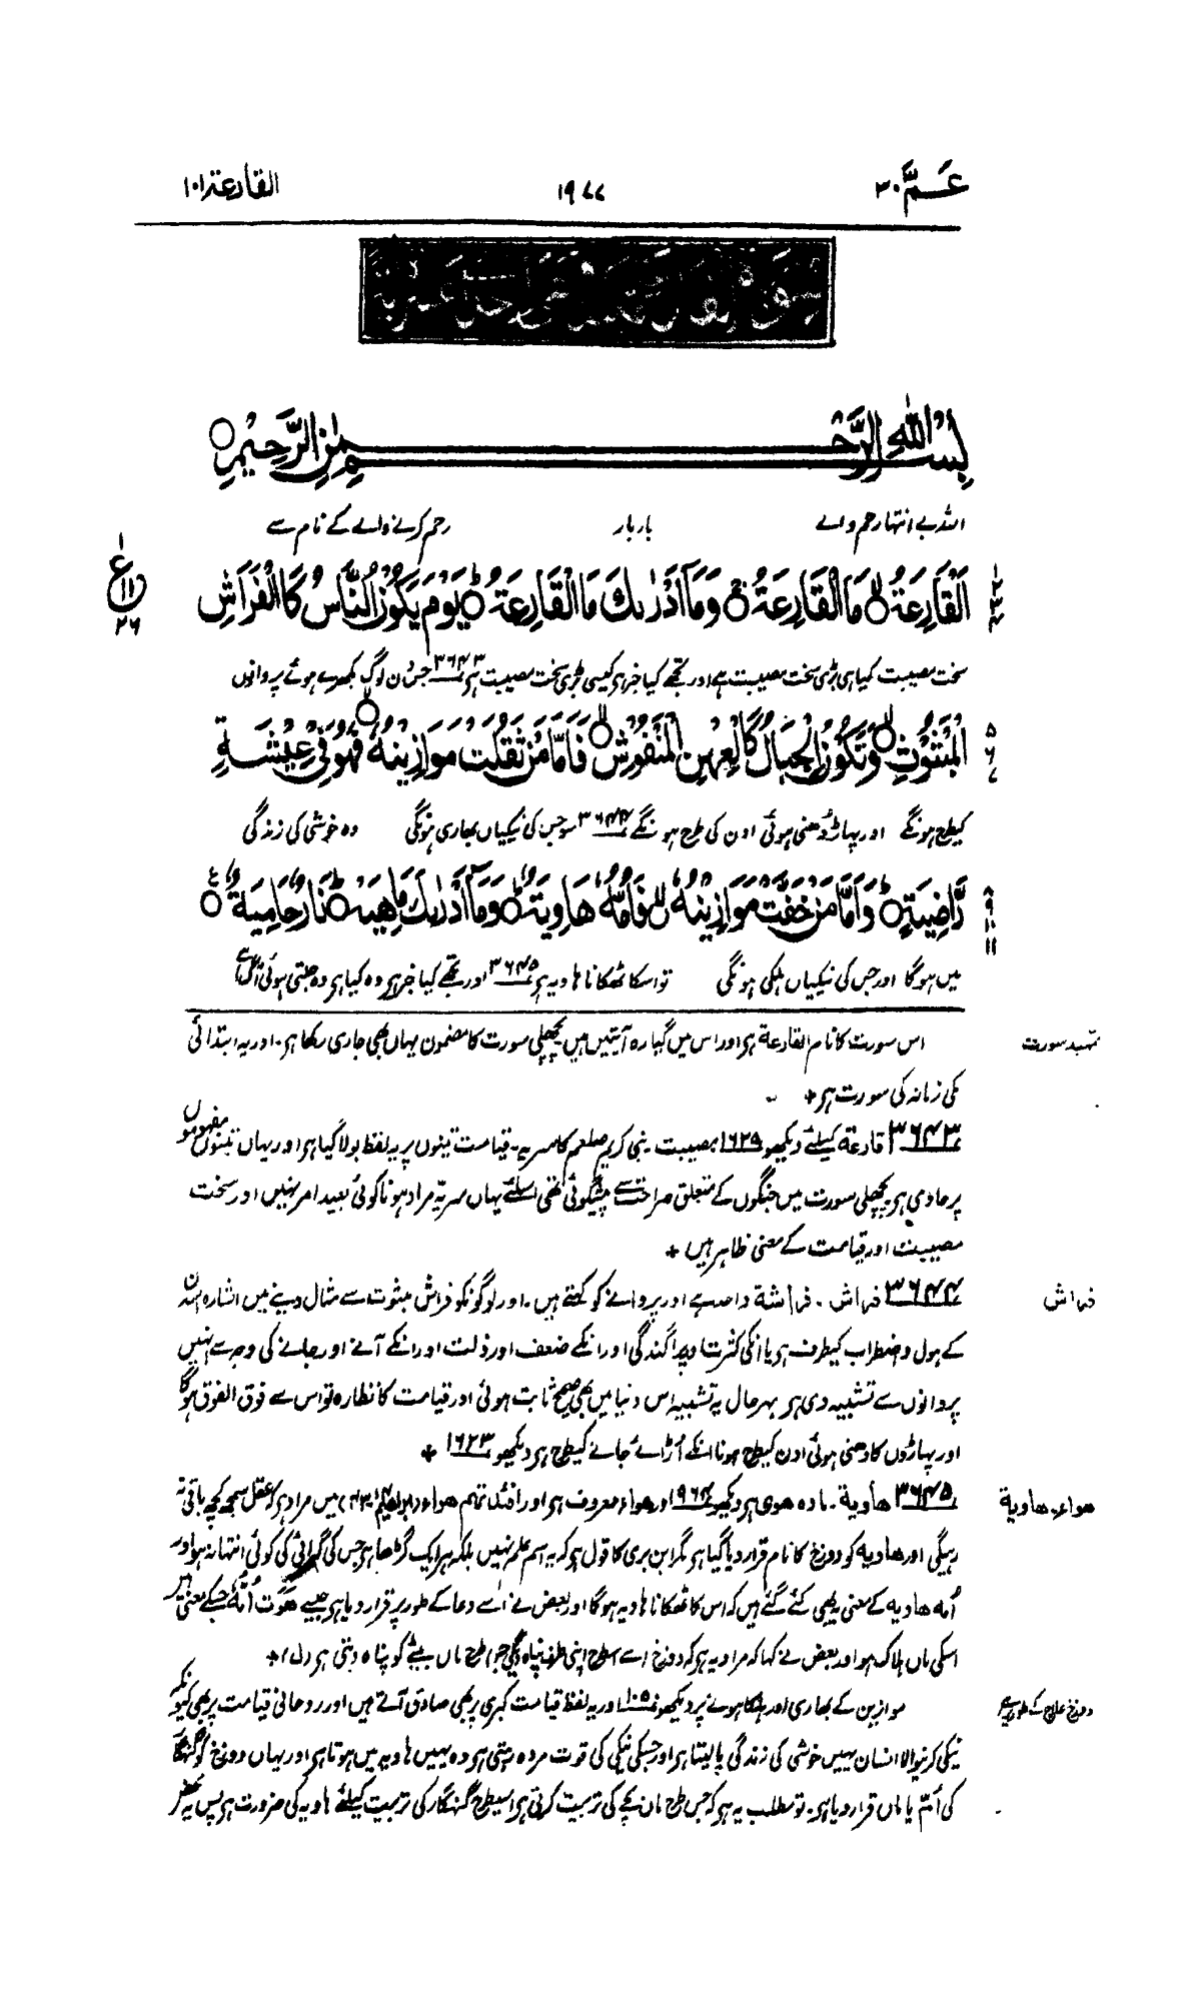 عَمَّ ۳۰
۱۹۷۷
القارعة ۱۰۱
بِسْمِ اللّٰهِ الرَّحْمٰنِ الرَّحِيْمِ ○
اللہ بے انتہا رحم والے بار بار رحم کرنے والے کے نام سے
اَلْقَارِعَةُ ○ مَا الْقَارِعَةُ ○ وَمَآ اَدْرٰىكَ مَا الْقَارِعَةُ ○ يَوْمَ يَكُوْنُ النَّاسُ كَالْفَرَاشِ
ع ۱۱ ۲۶
سخت مصیبت کیا ہی بڑی سخت مصیبت ہے اور تجھے کیا خبر ہے کیسی بڑی سخت مصیبت ہے ۳۶۴۳ جس دن لوگ بکھرے ہوئے پروانوں
الْمَبْثُوْثِ ○ وَتَكُوْنُ الْجِبَالُ كَالْعِهْنِ الْمَنْفُوْشِ ○ فَاَمَّا مَنْ ثَقُلَتْ مَوَازِيْنُهٗ ○ فَهُوَ فِيْ عِيْشَةٍ
۵ ۶ ۷
کیطرح ہونگے اور پہاڑ دُھنی ہوئی اون کی طرح ہونگے ۳۶۴۴ سو جس کی نیکیاں بھاری ہونگی وہ خوشی کی زندگی
رَّاضِيَةٍ ○ وَاَمَّا مَنْ خَفَّتْ مَوَازِيْنُهٗ ○ فَاُمُّهٗ هَاوِيَةٌ ○ وَمَآ اَدْرٰىكَ مَاهِيَهْ ○ نَارٌ حَامِيَةٌ ○
میں ہوگا اور جس کی نیکیاں ہلکی ہونگی تو اسکا ٹھکانا ہاویہ ہے ۳۶۴۵ اور تجھے کیا خبر ہے وہ کیا ہے وہ جلتی ہوئی آگ ہے
تمہید سورت
اس سورت کا نام القارعة ہے اور اس میں گیارہ آیتیں ہیں پچھلی سورت کا مضمون یہاں بھی جاری رکھا ہے۔ اور یہ ابتدائی
مکی زمانہ کی سورت ہے +
۳۶۴۳ قارعة کیلئے دیکھو ۱۶۲۹ مصیبت۔ نبی کریم صلعم کا سریہ۔ قیامت تینوں پر یہ لفظ بولا گیا ہے اور یہاں تینوں مفہوموں
پر حاوی ہے پچھلی سورت میں جنگوں کے متعلق صراحت سے پیشگوئی تھی اسلئے یہاں سریہ مراد ہونا کوئی بعید امر نہیں اور سخت
مصیبت اور قیامت کے معنی ظاہر ہیں +
فراش
۳۶۴۴ فراش۔ فراشة واحد ہے اور پروانے کو کہتے ہیں۔ اور لوگونکو فراش مبثوث سے مثال دینے میں اشارہ اسدن
کے ہول و اضطراب کیطرف ہے یا انکی کثرت اور پراگندگی اور انکے ضعف اور ذلت اور انکے آنے اور جانے کی وجہ سے انہیں
پروانوں سے تشبیہ دی ہے بہرحال یہ تشبیہ اس دنیا میں بھی صحیح ثابت ہوئی اور قیامت کا نظارہ تو اس سے فوق الفوق ہوگا
اور پہاڑوں کا دھنی ہوئی اون کیطرح ہونا انکے اُڑائے جانے کیطرح ہے دیکھو ۱۶۲۳ +
هواء۔ هاوية
۳۶۴۵ هاوية۔ مادہ هوی ہے دیکھو ۹۶۴ اور هواء معروف ہے اور افئدتهم هواء (ابراھیم ۴۳) میں مراد ہے کہ عقل سمجھ کچھ باقی نہ
رہیگی اور هاویه کو دوزخ کا نام قرار دیا گیا ہے مگر ابن بری کا قول ہے کہ یہ اسم علم نہیں بلکہ ہر ایک گڑھا ہے جس کی گہرائی کی کوئی انتہا نہ ہو اور
اُمه هاویه کے معنی یہ بھی کئے گئے ہیں کہ اس کا ٹھکانا ہاویہ ہوگا اور بعض نے اسے دعا کے طور پر قرار دیا ہے جیسے هَوَت اُمُّهٗ جسکے معنی ہیں
اسکی ماں ہلاک ہو اور بعض نے کہا کہ مراد یہ ہے کہ دوزخ اسے اسطرح اپنی طرف پناہ دیگی جسطرح ماں بیٹے کو پناہ دیتی ہے (ل) +
دوزخ علاج کے طور پر ہے
موازین کے بھاری اور ہلکا ہونے پر دیکھو ۱۰۵۲ اور یہ لفظ قیامت کبریٰ پر بھی صادق آتے ہیں اور روحانی قیامت پر بھی کیونکہ
نیکی کرنیوالا انسان یہیں خوشی کی زندگی پا لیتا ہے اور جسکی نیکی کی قوت مردہ رہتی ہے وہ یہیں ہاویہ میں ہوتا ہے اور یہاں دوزخ کو گنہگار
کی اُمّ یا ماں قرار دیا ہے۔ تو مطلب یہ ہے کہ جس طرح ماں بچے کی تربیت کرتی ہے اسیطرح گنہگار کی تربیت کیلئے ہاویہ کی ضرورت ہے پس یہ